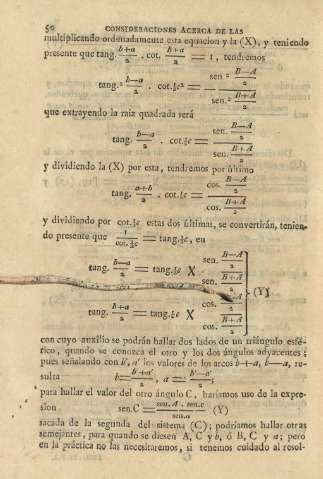 50 CONSIDERACIONES ACERCA DE LAS
multiplicando ordenadamente esta equacion y la (X), y teniendo
presente que tang. (b+a)/2 . cot. (b+a)/2 = 1, tendremos
tang.² (b—a)/2 . cot.½c² = sen.² (B—A)/2 / sen.² (B+A)/2
que extrayendo la raiz quadrada será
tang. (b—a)/2 . cot.½c = sen. (B—A)/2 / sen. (B+A)/2
y dividiendo la (X) por esta, tendremos por último
tang. (a+b)/2 . cot.½c = cos. (B—A)/2 / cos. (B+A)/2
y dividiendo por cot.½c estas dos últimas, se convertirán, tenien-
do presente que 1/cot.½c = tang.½c, en
tang. (b—a)/2 = tang.½c X sen. (B—A)/2 / sen. (B+A)/2
tang. (b+a)/2 = tang.½c X cos. (B—A)/2 / cos. (B+A)/2 . (Y)
con cuyo auxîlio se podrán hallar dos lados de un triángulo esfé-
rico, quando se conozca el otro y los dos ángulos adyacentes;
pues señalando con b', a' los valores de los arcos b+a, b—a, re-
sulta b = (b'+a')/2, a = (b'—a')/2;
para hallar el valor del otro ángulo C, haríamos uso de la expre-
sion sen.C = sen.A . sen.c / sen.a (Y)
sacada de la segunda del sistema (C); podríamos hallar otras
semejantes, para quando se diesen A, C y b, ó B, C y a; pero
en la práctica no las necesitaremos, si tenemos cuidado al resol-